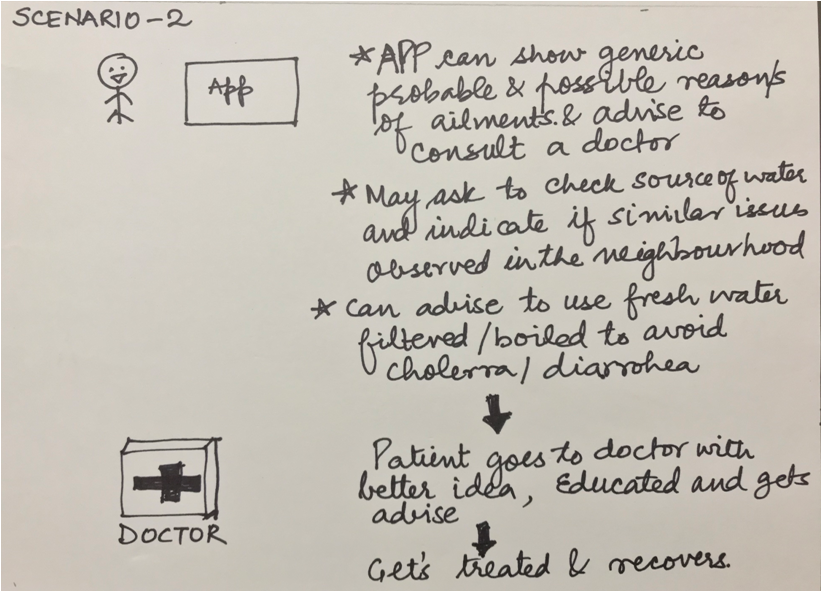 SCENARIO-2
App
*APP can show generic
probable & possible reason/s
of ailments. & advise to
consult a doctor
*May ask to check source of water
and indicate if similar issues
observed in the neighbourhood
*can advise to use fresh water
filtered/boiled to avoid
cholerra/ diarrohea
Patient goes to doctor with
better idea, Educated and gets
advise
DOCTOR
Get's treated & recovers.